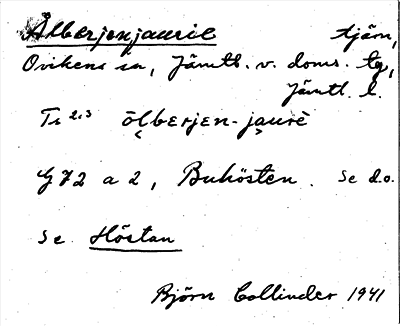 Ålberjenjaurie tjärn,
Ovikens sn, Jämtl. v. doms. tg,
Jämtl. l.
Tr 2,3 ōlberjen-jaurè
G72 a 2, Buhösten. Se d.o.
Se Höstan
Björn Collinder 1941